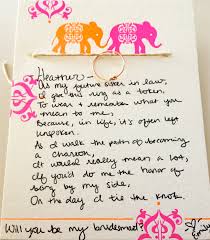 Heather -
As my future sister in law,
I got this ring as a token,
To wear & remember what you
mean to me,
Because, in life, it's often left
unspoken.
As I walk the path of becoming
a Chareon,
It would really mean a lot,
If you'd do me the honor of
being by my side,
On the day I tie the knot.
Will you be my bridesmaid?
Emily